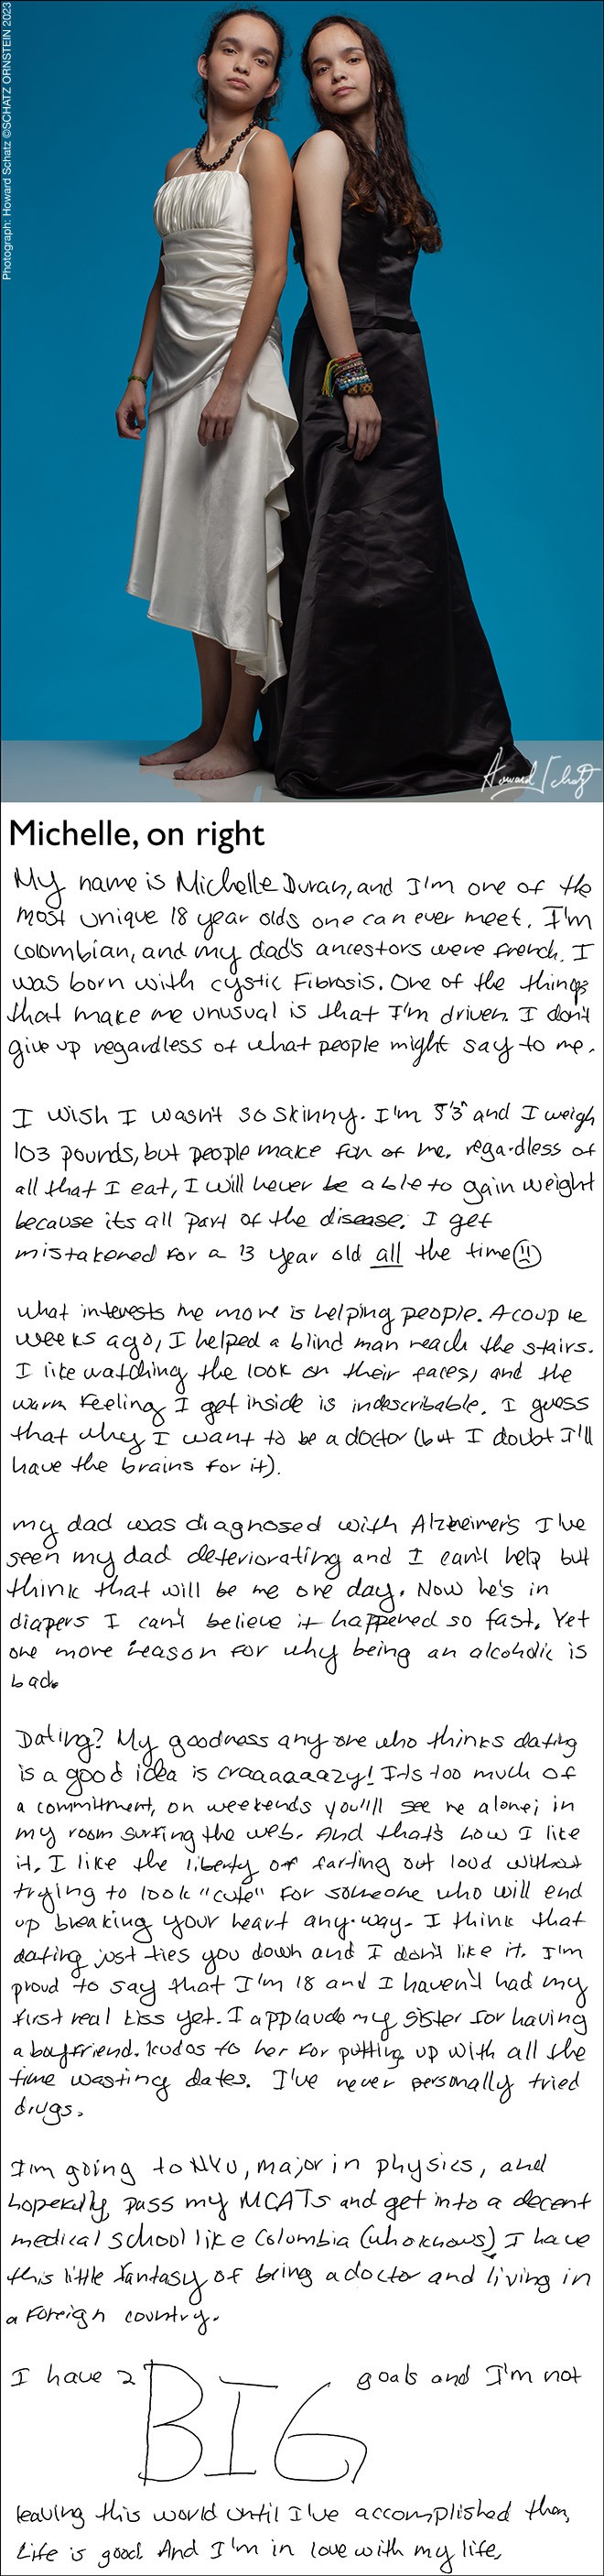 Photograph: Howard Schatz ©SCHATZ ORNSTEIN 2023
Howard Schatz
Michelle, on right
My name is Michelle Duran, and I'm one of the
most unique 18 year olds one can ever meet. I'm
colombian, and my dad's ancestors were french. I
was born with cystic Fibrosis. One of the things
that make me unusual is that I'm driven. I don't
give up regardless of what people might say to me.
I wish I wasn't so skinny. I'm 5'3" and I weigh
103 pounds, but people make fun of me. regardless of
all that I eat, I will never be able to gain weight
because its all part of the disease. I get
mistakened for a 13 year old all the time
what interests me more is helping people. A couple
weeks ago, I helped a blind man reach the stairs.
I like watching the look on their faces, and the
warm feeling I get inside is indescribable. I guess
that why I want to be a doctor (but I doubt I'll
have the brains for it).
my dad was diagnosed with Alzheimer's I've
seen my dad deteriorating and I can't help but
think that will be me one day. Now he's in
diapers I can't believe it happened so fast. Yet
one more reason for why being an alcoholic is
bad.
Dating? My goodness any one who thinks dating
is a good idea is craaaaaazy! It's too much of
a commitment, on weekends you'll see me alone; in
my room surfing the web. And that's how I like
it. I like the liberty of farting out loud without
trying to look "cute" for someone who will end
up breaking your heart any-way. I think that
dating just ties you down and I don't like it. I'm
proud to say that I'm 18 and I haven't had my
first real kiss yet. I applaude my sister for having
a boyfriend. kudos to her for putting up with all the
time wasting dates. I've never personally tried
drugs.
I'm going to NYU, major in physics, and
hopefully pass my MCATs and get into a decent
medical school like Columbia (who knows) I have
this little fantasy of being a doctor and living in
a foreign country.
I have 2 BIG goals and I'm not
leaving this world until I've accomplished them,
Life is good. And I'm in love with my life,